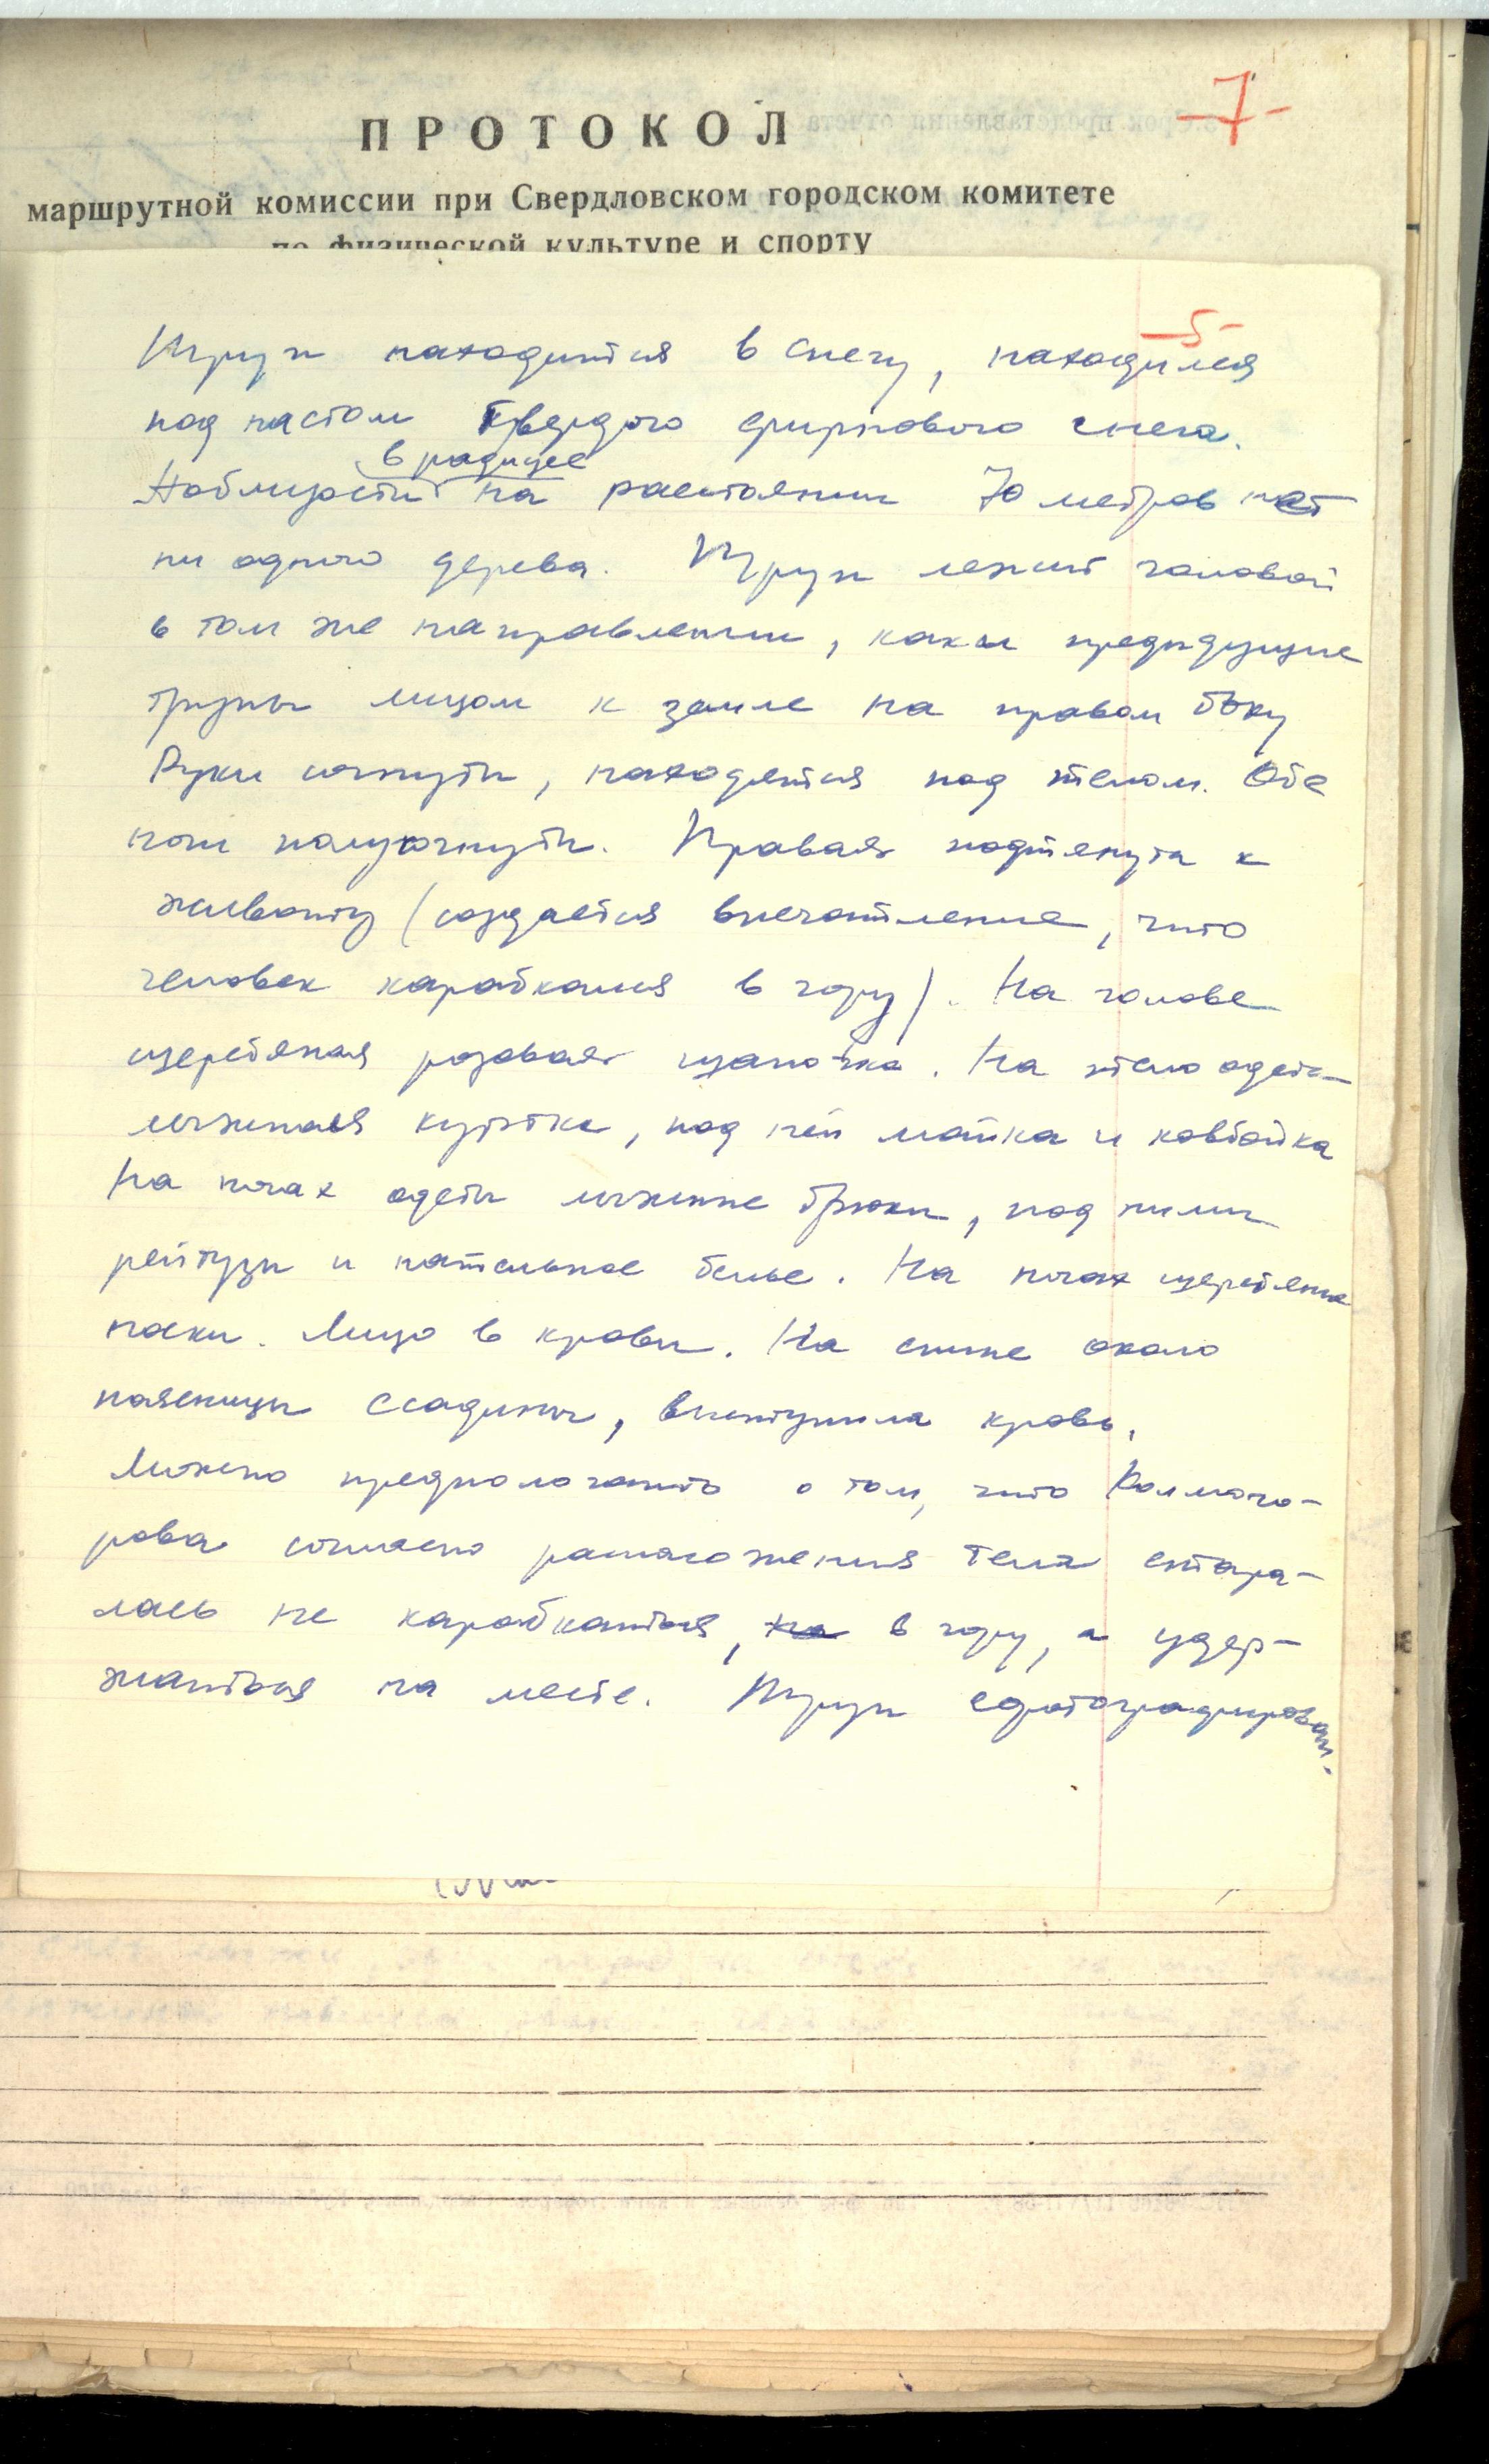 -7-
ПРОТОКОЛ
маршрутной комиссии при Свердловском городском комитете
по физической культуре и спорту
-5-
Труп находится в снегу, находился
под настом твердого фирнового снега.
в радиусе
Поблизости на расстоянии 70 метров нет
ни одного дерева. Труп лежит головой
в том же направлении, как и предыдущие
трупы лицом к земле на правом боку
Руки согнуты, находятся под телом. Обе
ноги полусогнуты. Правая подтянута к
животу (создается впечатление, что
человек карабкался в гору). На голове
шерстяная розовая шапочка. На тело одета
лыжная куртка, под ней майка и ковбойка
На ногах одеты лыжные брюки, под ними
рейтузы и нательное белье. На ногах шерстяные
носки. Лицо в крови. На спине около
поясницы ссадины, выступила кровь.
Можно предполагать о том, что Колмого-
рова согласно расположения тела стара-
лась не карабкаться, на в гору, а удер-
жаться на месте. Труп сфотографирован.